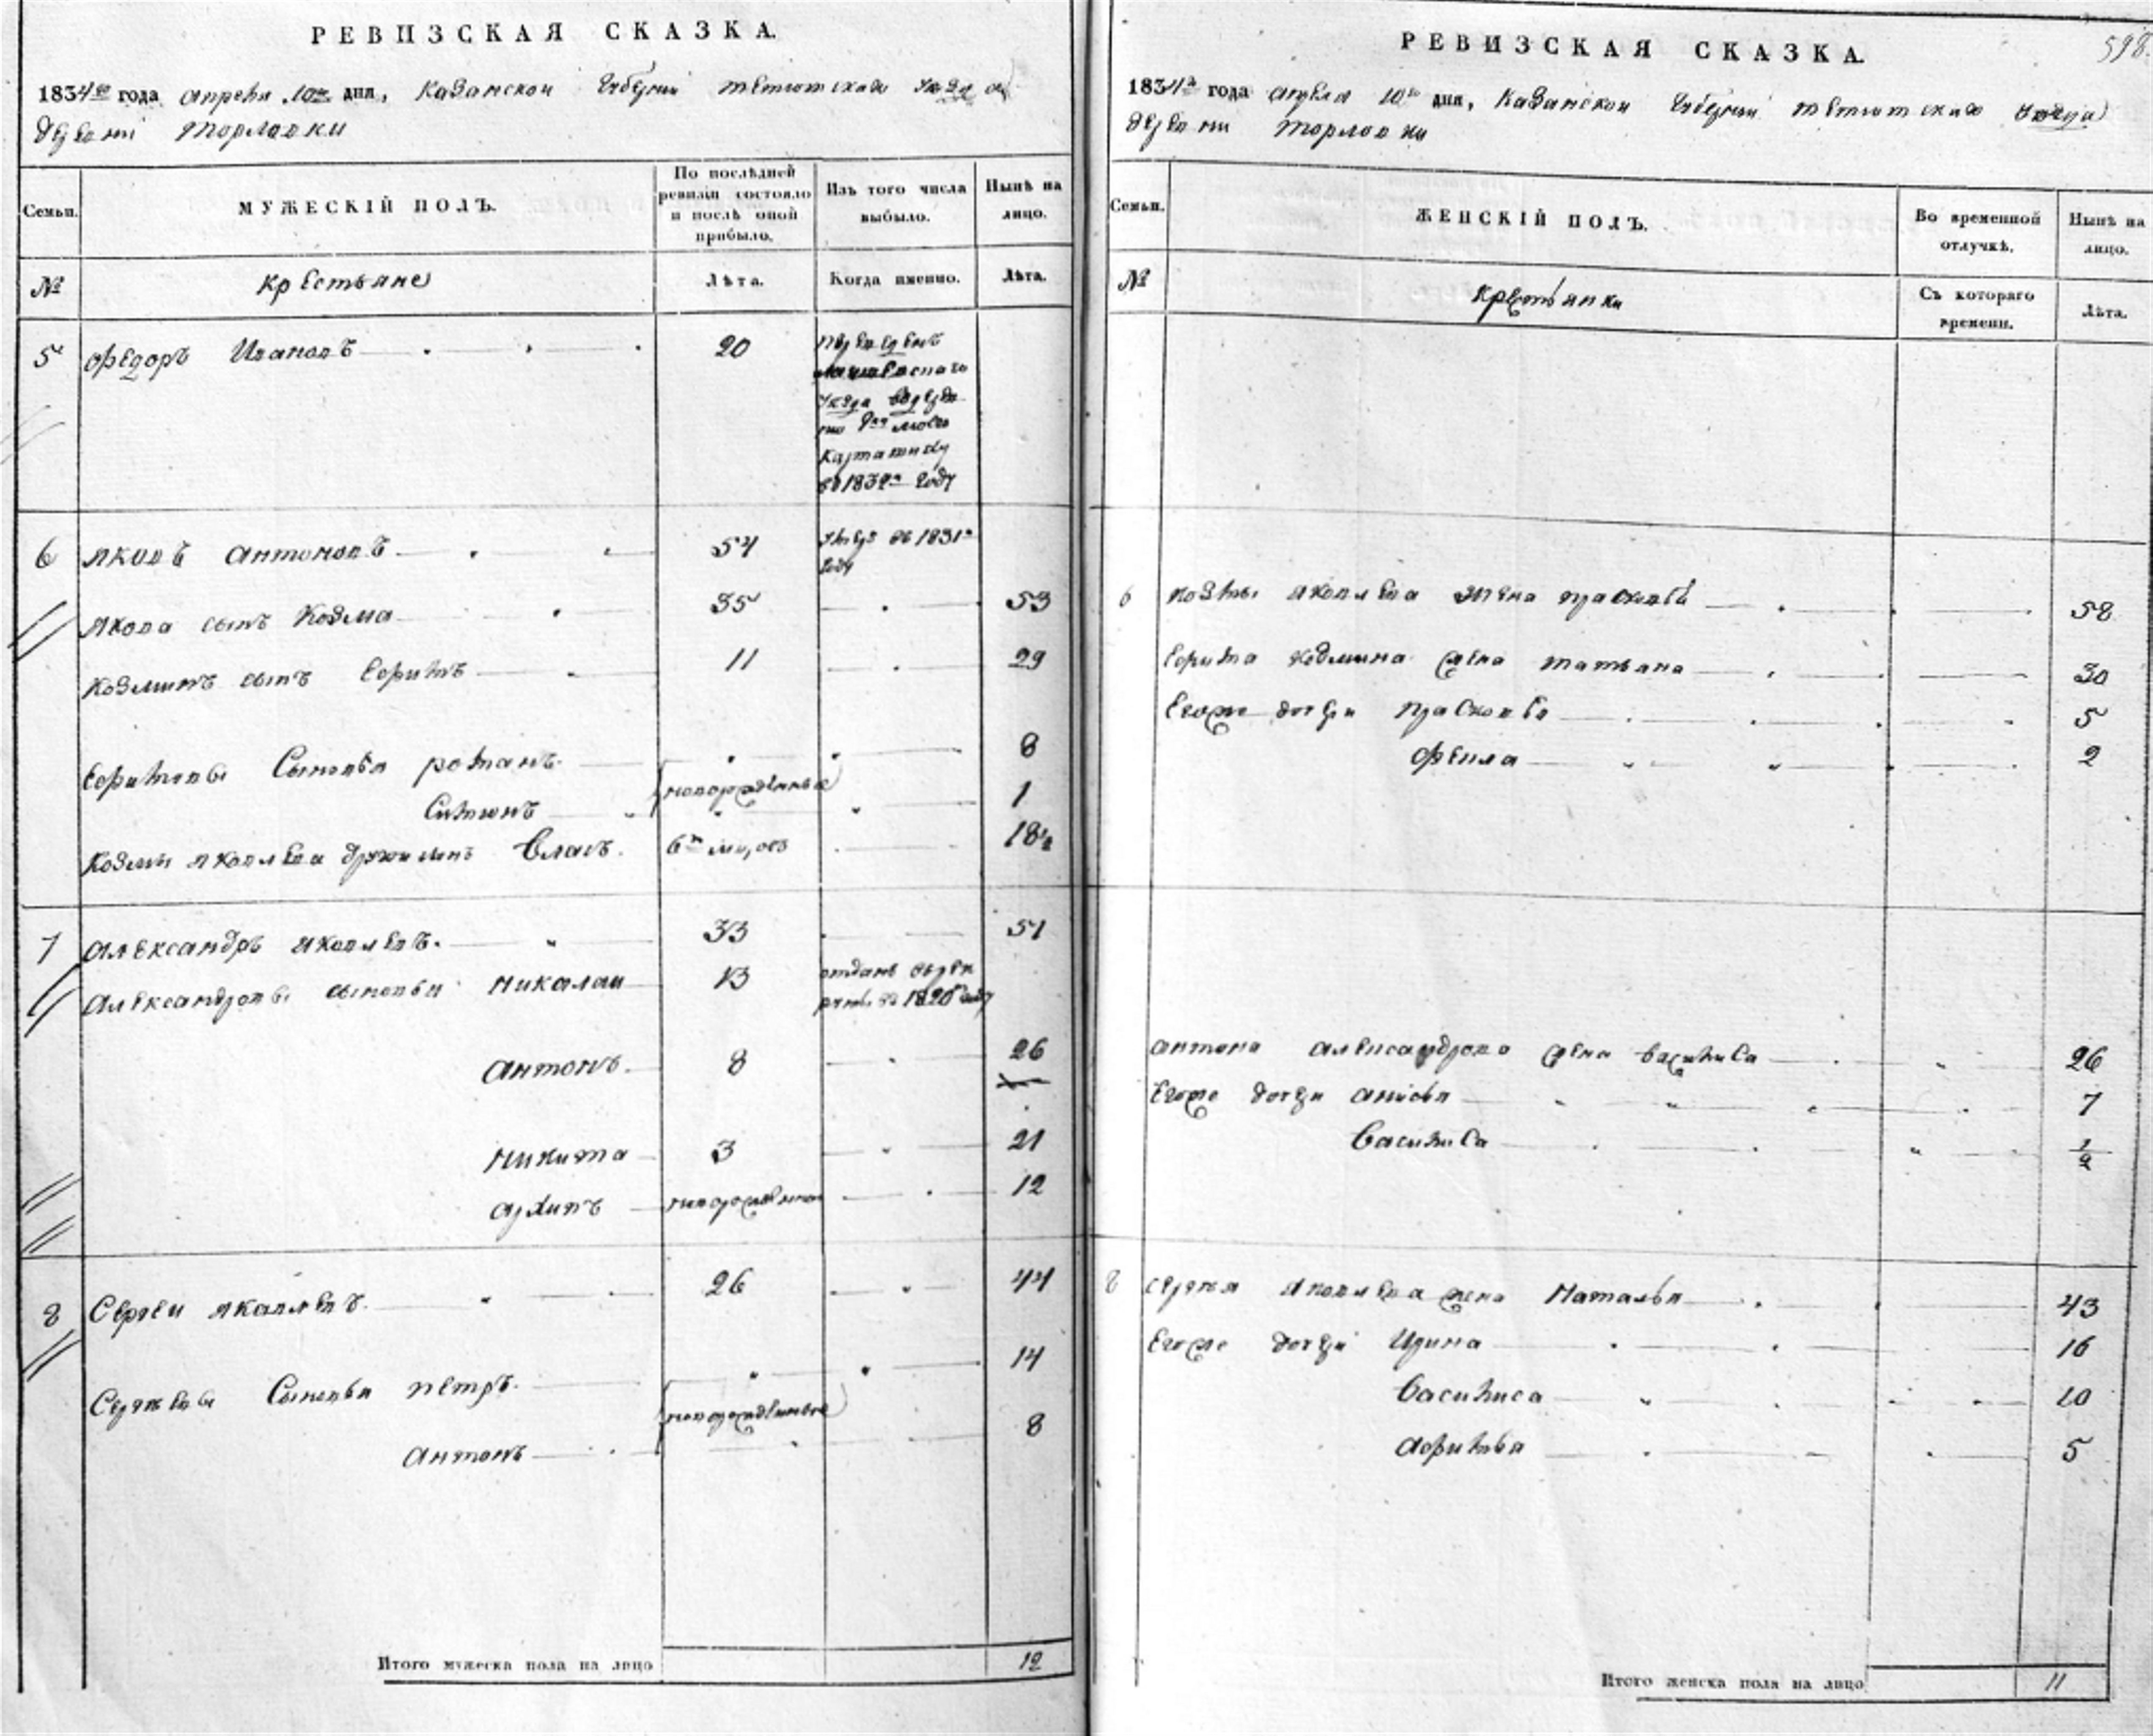 РЕВИЗСКАЯ СКАЗКА.
1834го года апреля 10го дня, Казанской Губерний тетюшскаго уезда
деревни торловки
Семьи.
МУЖЕСКІЙ ПОЛЪ.
По послѣдней ревизіи состояло и послѣ оной прибыло.
Изъ того числа выбыло.
Нынѣ на лицо.
№
крестьяне
Лѣта.
Когда именно.
Лѣта.
5 Федоръ Ивановъ 20 переведенъ
уезда
в 1832м году
6 яковъ антоновъ 54 умре въ 1831м
году
якова сынъ Козма 35 53
козминъ сынъ Ефимъ 11 29
Ефимовы Сыновья романъ 8
новорожденные
Симионъ 1
Козмы яковлева Власъ 6 18½
7 александръ яковлевъ 33 51
александровы сыновьи николаи 13 отданъ в рек
руты в 1820 году
антонъ 8 26
никита 3 21
архипъ новорожденной 12
8 Сергеи якавлевъ 26 44
Сергеевы Сыновья петръ 14
новорожденные
антонъ 8
Итого мужеска пола на лицо 12
598.
РЕВИЗСКАЯ СКАЗКА.
1834го года апреля 10го дня, Казанской Губерний тетюшскаго уезда
деревни торловки
Семьи.
ЖЕНСКІЙ ПОЛЪ.
Во временной отлучкѣ.
Нынѣ на лицо.
№
крестьянки
Съ котораго времени.
Лѣта.
6 козмы яковлева жена прасковья 58
Ефима козмина жена татьяна 30
Егоже дочери прасковья 5
Фекла 2
антона александрова жена василиса 26
Егоже дочери анисья 7
Василиса ½
8 сергея яковлева жена Наталья 43
Егоже дочери Ирина 16
Василиса 10
афимья 5
Итого женска пола на лицо 11